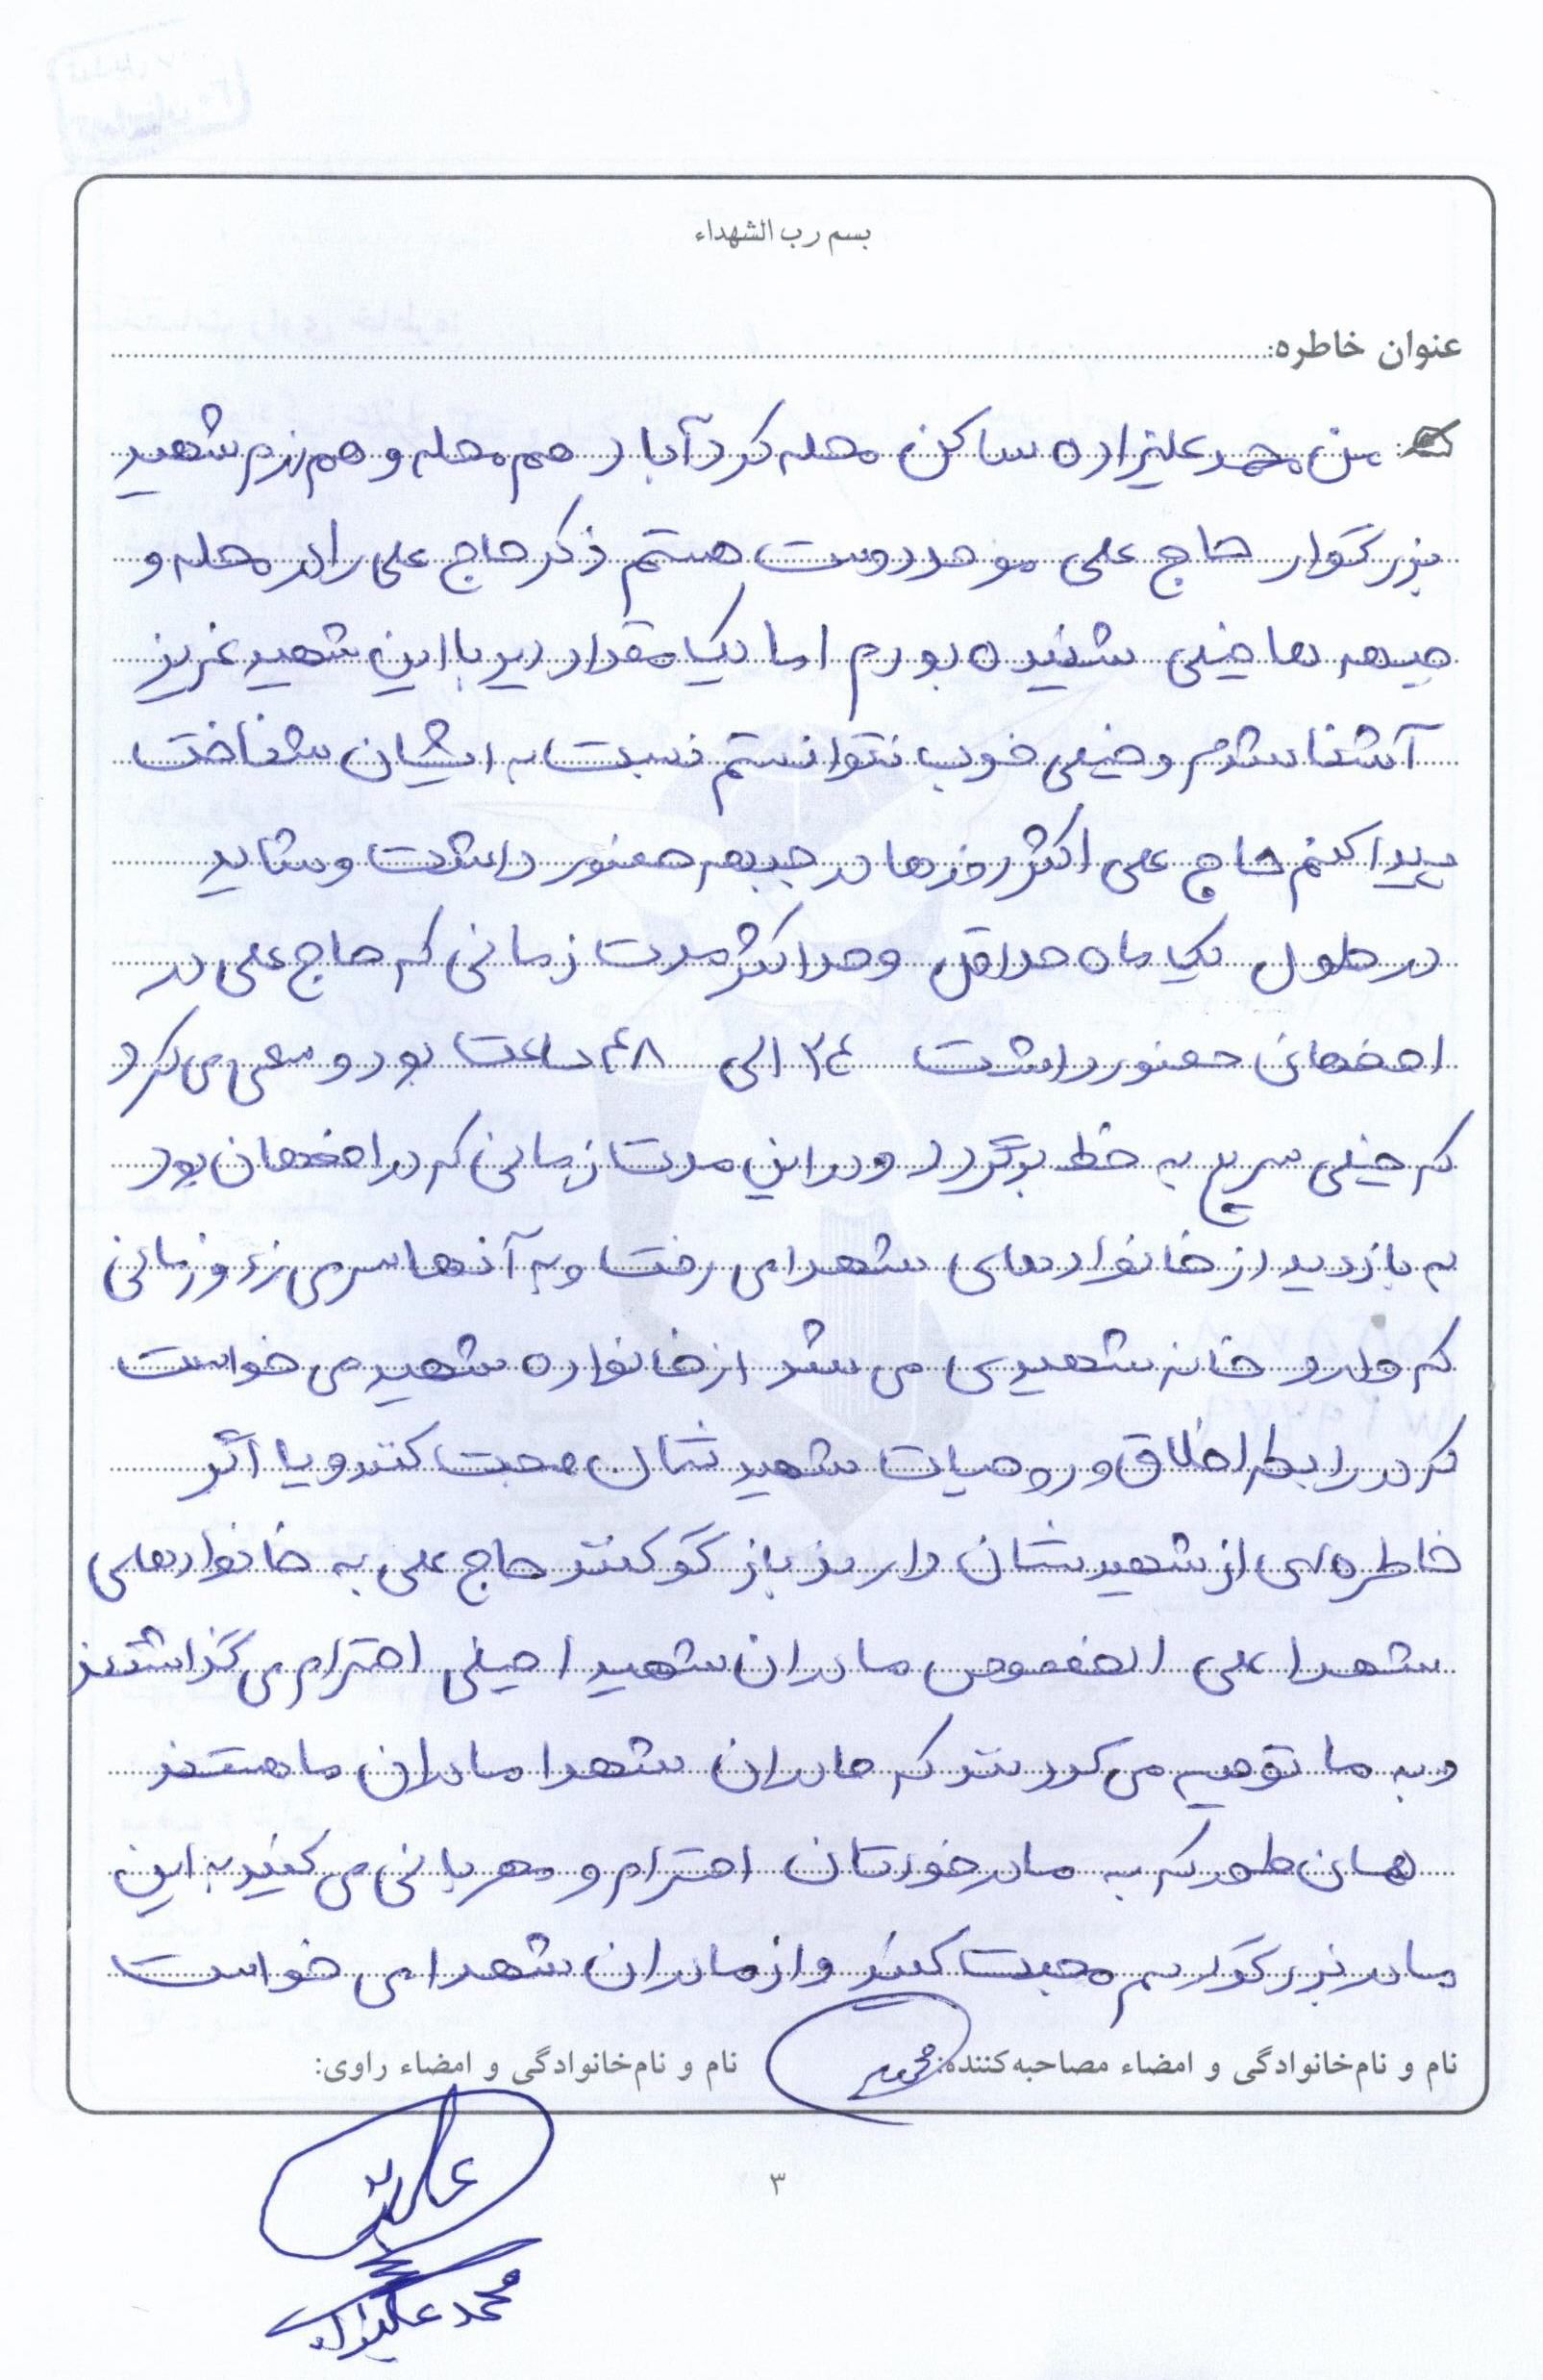 بسم رب الشهداء
عنوان خاطره:
من محمد علیزاده ساکن محله کردآباد هم محله و هم رزم شهید
بزرگوار حاج علی موحد دوست هستم ذکر حاج علی را در محله و
جبهه ها خیلی شنیده بودم اما یک مقدار دیر با این شهید عزیز
آشنا شدم و خیلی خوب نتوانستم نسبت به ایشان شناخت
پیدا کنم حاج علی اکثر روزها در جبهه حضور داشت و شاید
در طول یک ماه حداقل و حداکثر مدت زمانی که حاج علی در
اصفهان حضور داشت ۲۴ الی ۴۸ ساعت بود و سعی می کرد
که خیلی سریع به خط برگردد و در این مدت زمانی که در اصفهان بود
به بازدید از خانوادهای شهدا می رفت و به آنها سر می زد و زمانی
که وارد خانه شهیدی می شد از خانواده شهید می خواست
که در رابطه اخلاق و روحیات شهیدشان صحبت کنند و یا اگر
خاطره ای از شهیدشان دارند باز گو کنند حاج علی به خانوادهای
شهدا علی الخصوص مادران شهید احیلی احترام می گذاشتند
و به ما توصیه می کردند که مادران شهدا مادران ما هستند
همان طور که به مادر خودتان احترام و مهربانی می کنید به این
مادر بزرگوار هم محبت کنید و از مادران شهدا می خواست
نام و نام خانوادگی و امضاء مصاحبه کننده: نام و نام خانوادگی و امضاء راوی:
۳
محمد علیزاده